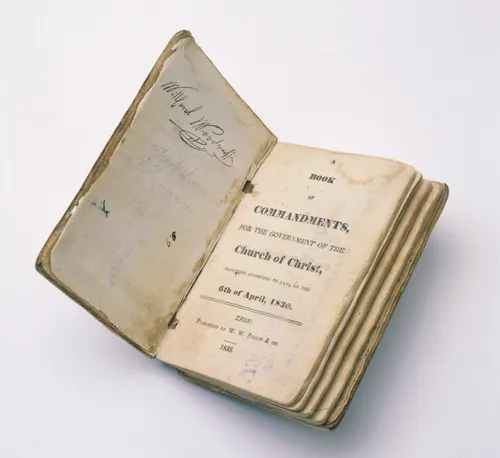 Wilford Woodruff
BOOK
OF
COMMANDMENTS,
FOR THE GOVERNMENT OF THE
Church of Christ,
ORGANIZED ACCORDING TO LAW, ON THE
6th of April, 1830.
ZION:
PUBLISHED BY W. W. PHELPS & CO.
1833.